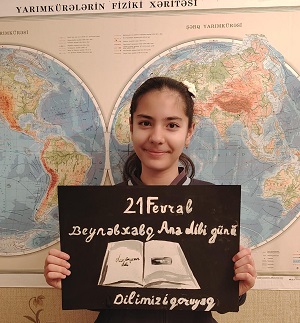 YARIMKÜRƏLƏRİN FİZİKİ XƏRİTƏSİ
ŞƏRQ YARIMKÜRƏSİ
21 Fevral
Beynəlxalq Ana dili günü
Dilimizi qoruyaq